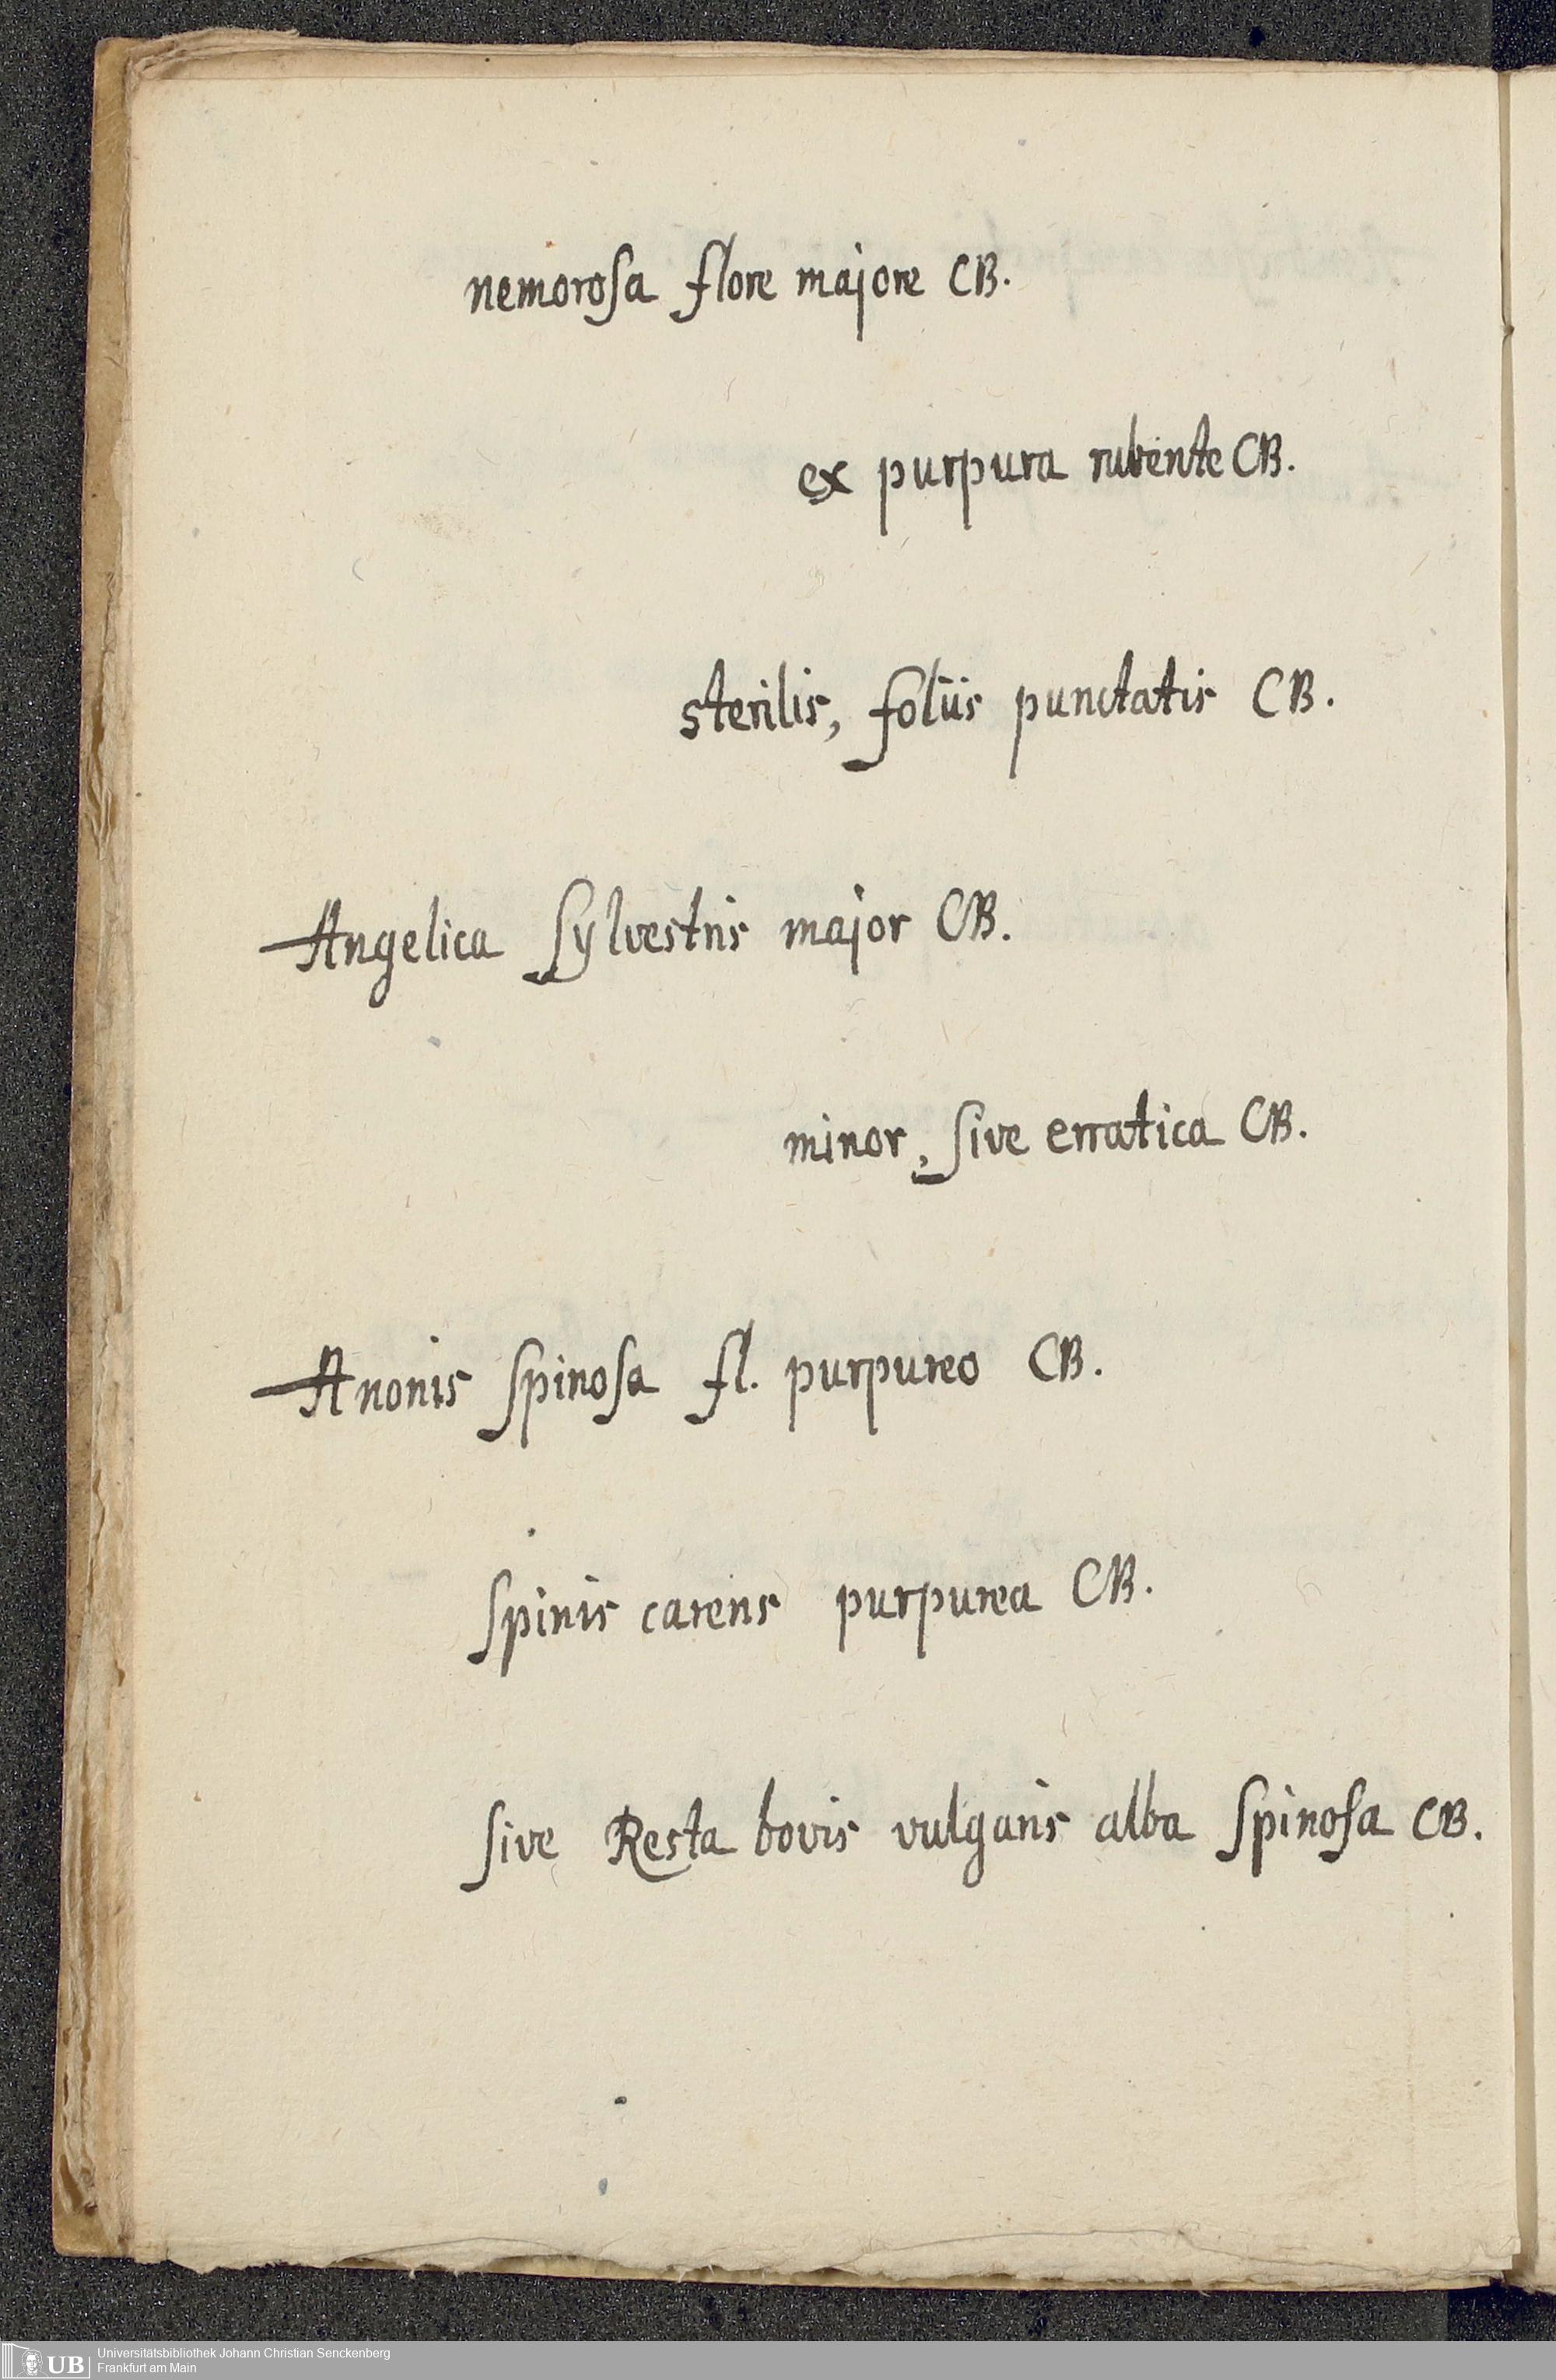 nemorosa flore majore CB.
ex purpura rubente CB.
sterilis, foliis punctatis CB.
Angelica sylvestris major CB.
minor, sive erratica CB.
Anonis spinosa fl. purpureo CB.
spinis carens purpurea CB.
sive Resta bovis vulgaris alba spinosa CB.
UB
Universitätsbibliothek Johann Christian Senckenberg
Frankfurt am Main